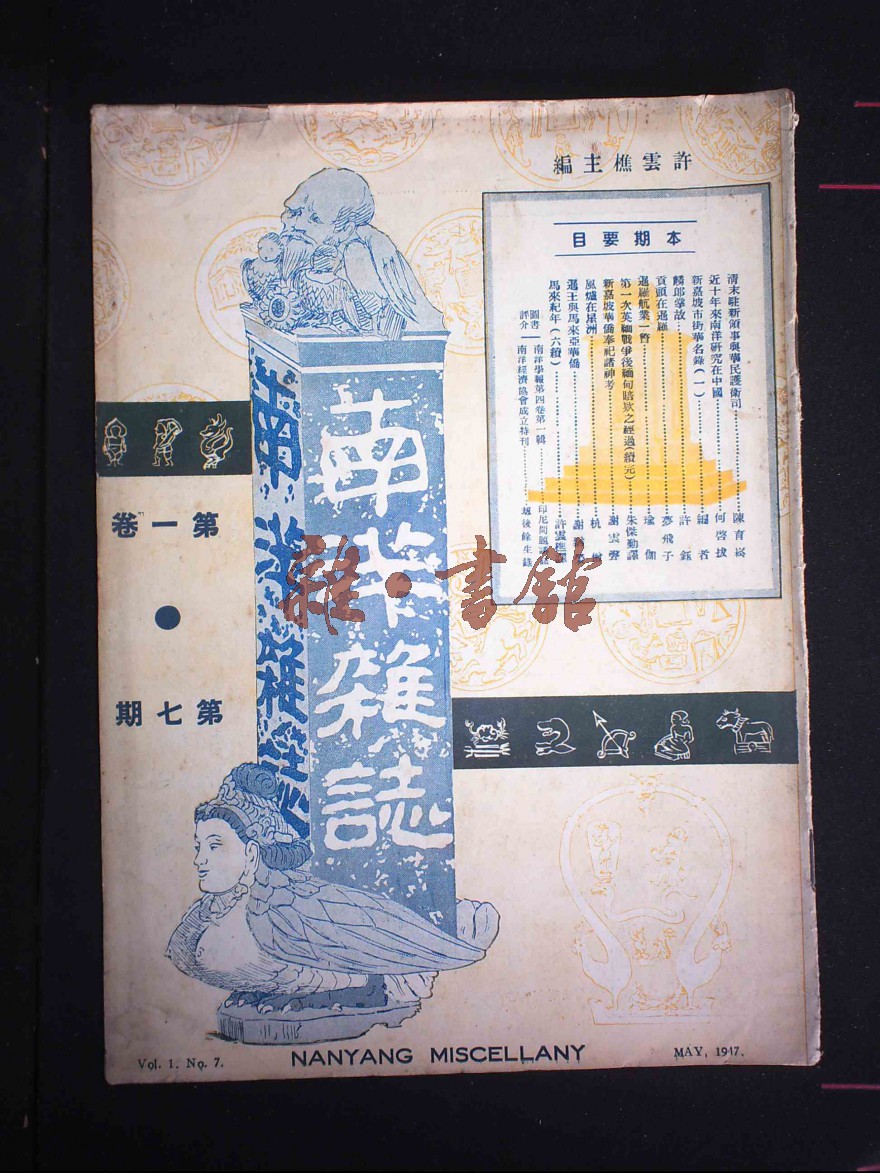 許雲樵主編
本期要目
清末駐新領事與華民護衛司
陳育崧
近十年來南洋研究在中國
何啓拔
新嘉坡市街華名錄(一)
編者
麟郎掌故
許鈺
貢頭在暹羅
夢飛子
暹羅航業一瞥
第一次英緬戰爭後緬甸賠款之經過(續完)
朱傑勤譯
新嘉坡華僑奉祀諸神考
謝雲聲
風爐在星洲
暹王與馬來亞華僑
馬來紀年(六續)
許雲樵譯
圖書評介
南洋學報第四卷第一輯
南洋經濟協會成立特刊
南洋雜誌
南洋雜誌
第一卷
第七期
雜·書館
Vol. 1. No. 7.
NANYANG MISCELLANY
MAY, 1947.